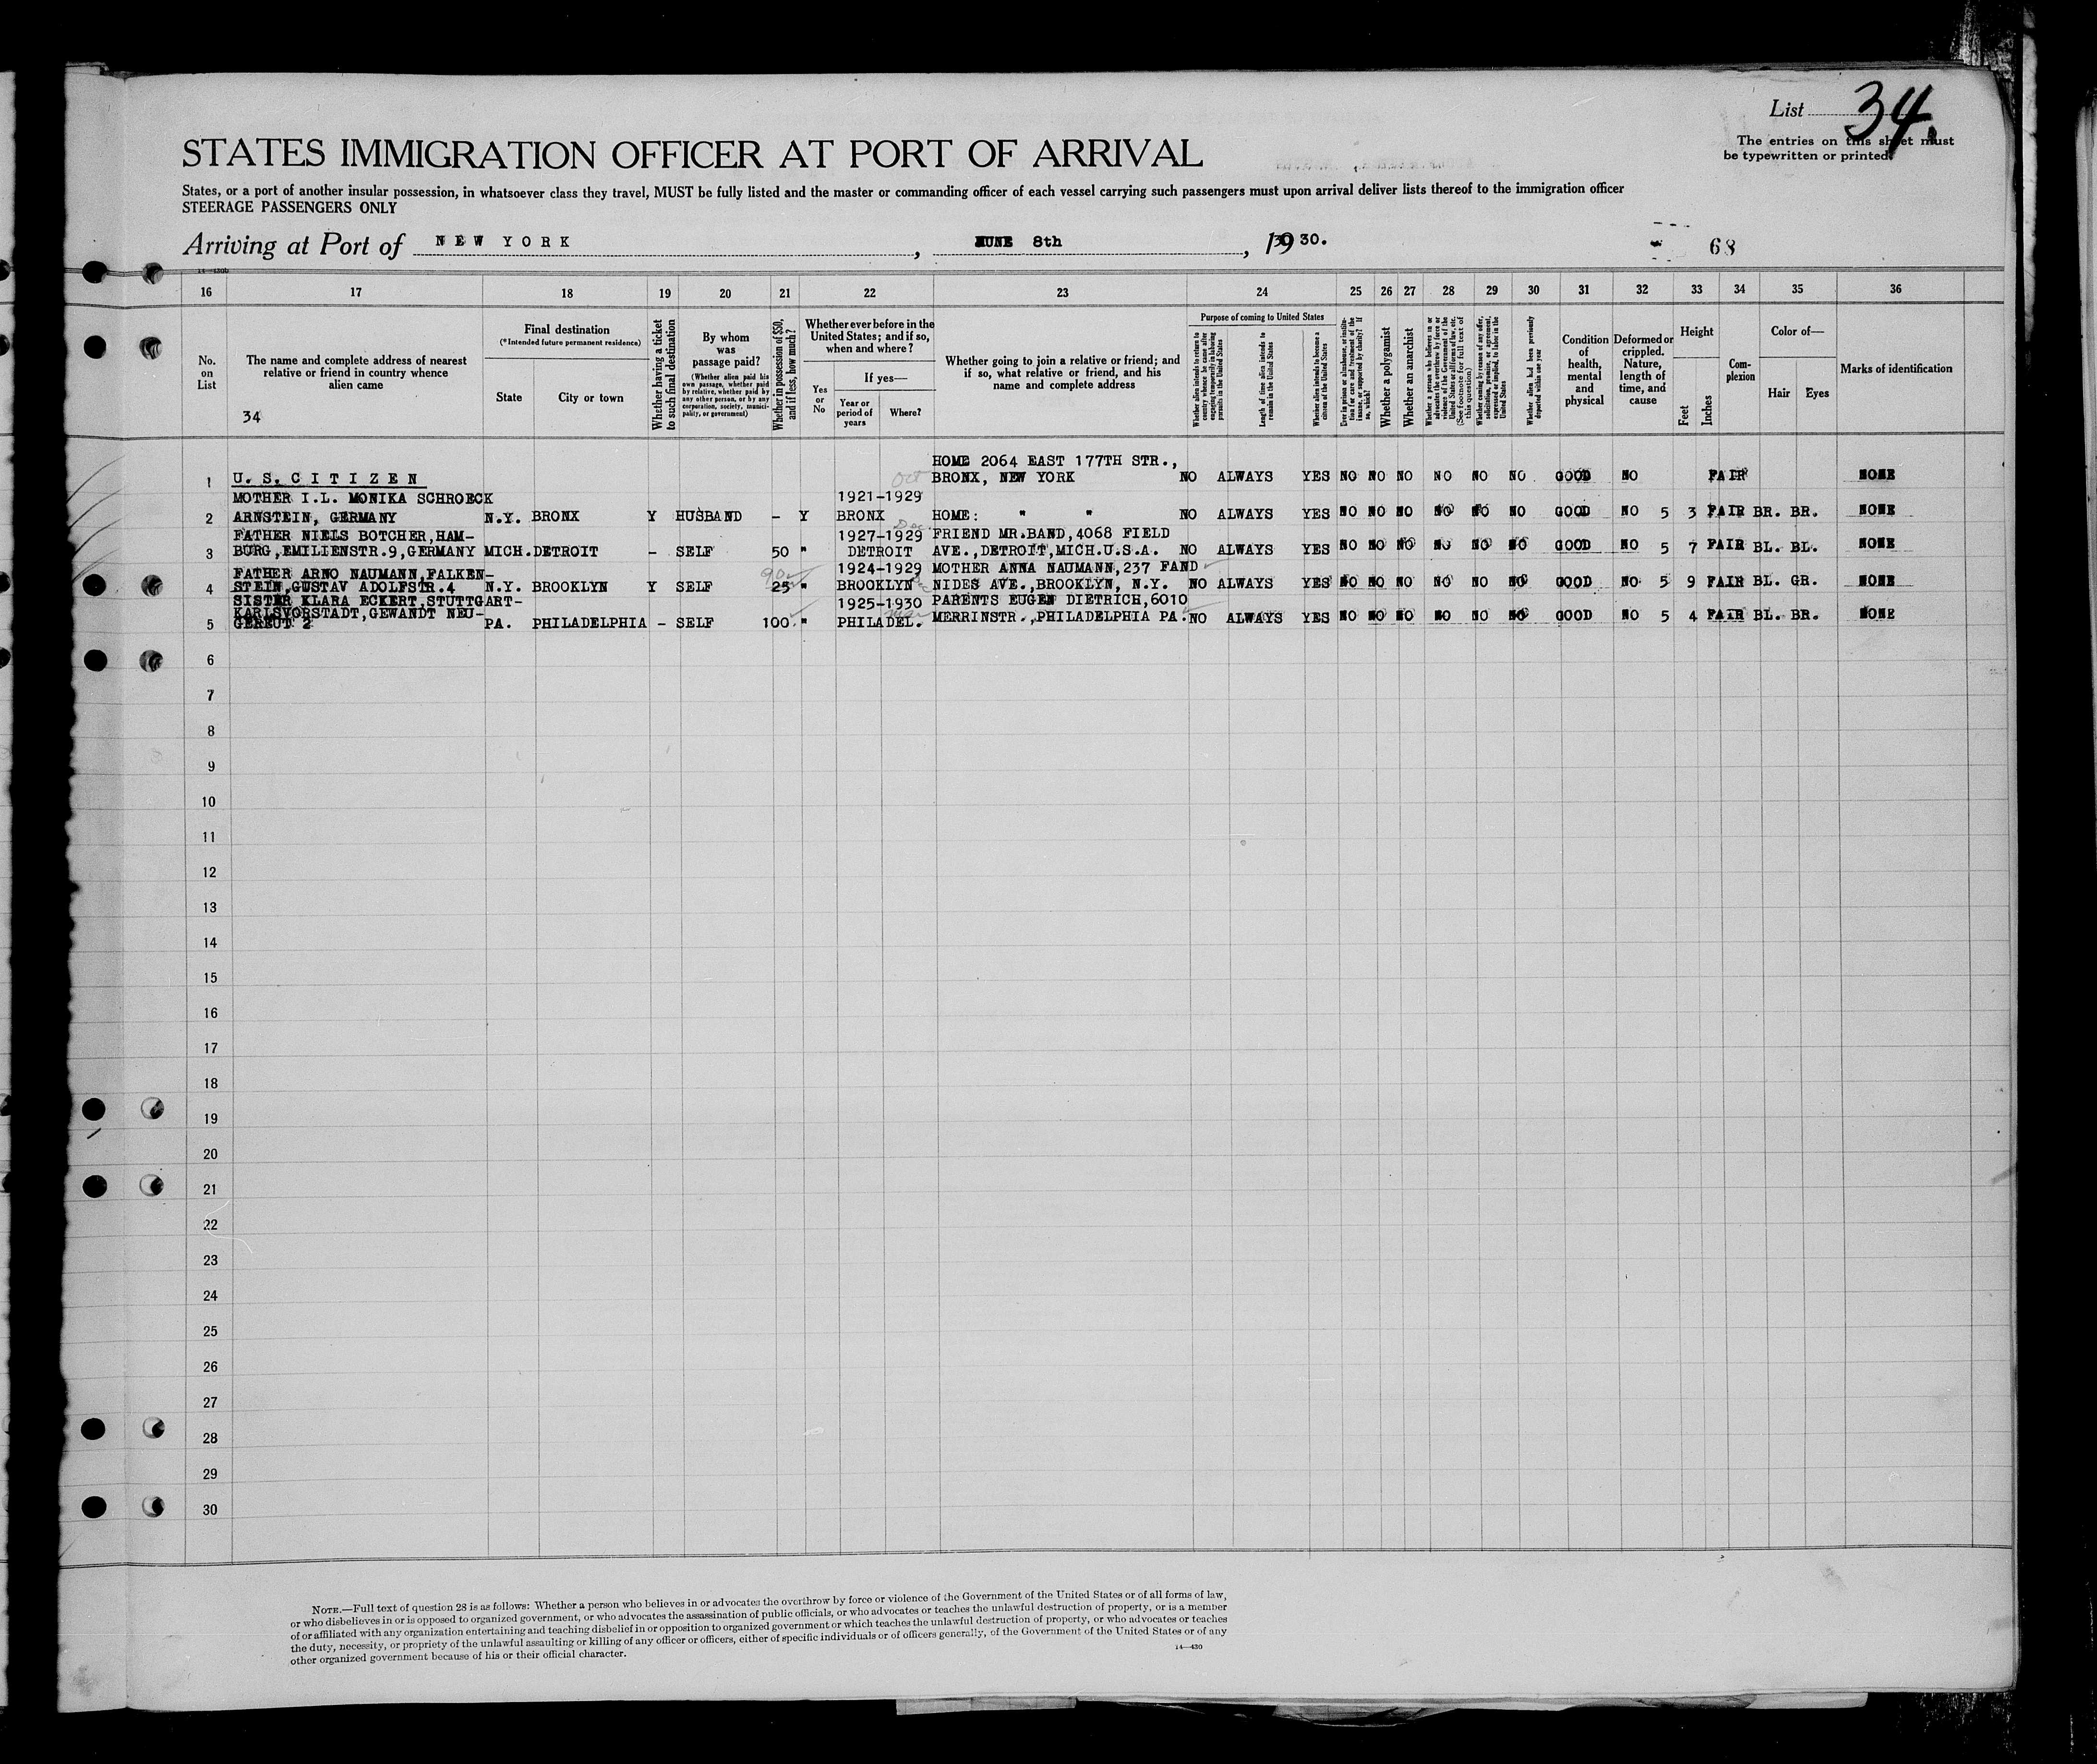 List 34.
The entries on this sheet must
be typewritten or printed.
STATES IMMIGRATION OFFICER AT PORT OF ARRIVAL
States, or a port of another insular possession, in whatsoever class they travel, MUST be fully listed and the master or commanding officer of each vessel carrying such passengers must upon arrival deliver lists thereof to the immigration officer
STEERAGE PASSENGERS ONLY
Arriving at Port of NEW YORK, JUNE 8th, 1930.
68
16 17 18 19 20 21 22 23 24 25 26 27 28 29 30 31 32 33 34 35 36
No. on List
The name and complete address of nearest
relative or friend in country whence
alien came
34
Final destination
(*Intended future permanent residence)
State
City or town
Whether having a ticket
to such final destination
By whom
was
passage paid?
(Whether alien paid his
own passage, whether paid
by relative, whether paid by
any other person, or by any
corporation, society, munici-
pality, or government)
Whether in possession of $50,
and if less, how much?
Whether ever before in the
United States; and if so,
when and where?
Yes
or
No
If yes—
Year or
period of
years
Where?
Whether going to join a relative or friend; and
if so, what relative or friend, and his
name and complete address
Purpose of coming to United States
Whether alien intends to return to
country whence he came after
engaging temporarily in laboring
pursuits in the United States
Length of time alien intends to
remain in the United States
Whether alien intends to become a
citizen of the United States
Ever in prison or almshouse, or institu-
tion for care and treatment of the
insane, or supported by charity? If
so, which?
Whether a polygamist
Whether an anarchist
Whether a person who believes in or
advocates the overthrow by force or
violence of the Government of the
United States or all forms of law, etc.
(See footnote for full text of
this question)
Whether coming by reason of any offer,
solicitation, promise, or agreement,
expressed or implied, to labor in the
United States
Whether alien had been previously
deported within one year
Condition
of
health,
mental
and
physical
Deformed or
crippled.
Nature,
length of
time, and
cause
Height
Feet
Inches
Com-
plexion
Color of—
Hair
Eyes
Marks of identification
HOME 2064 EAST 177TH STR.,
1 U. S. CITIZEN Oct BRONX, NEW YORK NO ALWAYS YES NO NO NO NO NO NO GOOD NO FAIR NONE
MOTHER I.L. MONIKA SCHROECK 1921-1929
2 ARNSTEIN, GERMANY N.Y. BRONX Y HUSBAND - Y BRONX HOME: " " NO ALWAYS YES NO NO NO NO NO NO GOOD NO 5 3 FAIR BR. BR. NONE
FATHER NIELS BOTCHER,HAM- 1927-1929 Dec. FRIEND MR.BAND,4068 FIELD
3 BURG,EMILIENSTR.9,GERMANY MICH. DETROIT - SELF 50 " DETROIT AVE.,DETROIT,MICH.U.S.A. NO ALWAYS YES NO NO NO NO NO NO GOOD NO 5 7 FAIR BL. BL. NONE
FATHER ARNO NAUMANN,FALKEN- 1924-1929 MOTHER ANNA NAUMANN,237 FAND
4 STEIN,GUSTAV ADOLFSTR.4 N.Y. BROOKLYN Y SELF 25 " BROOKLYN NIDES AVE.,BROOKLYN, N.Y. NO ALWAYS YES NO NO NO NO NO NO GOOD NO 5 9 FAIR BL. GR. NONE
SISTER KLARA ECKERT,STUTTGART- 1925-1930 PARENTS EUGEN DIETRICH,6010
KARLSVORSTADT,GEWANDT NEU-
5 GEREUT 2 PA. PHILADELPHIA - SELF 100. " PHILADEL. MERRINSTR.,PHILADELPHIA PA. NO ALWAYS YES NO NO NO NO NO NO GOOD NO 5 4 FAIR BL. BR. NONE
6
7
8
9
10
11
12
13
14
15
16
17
18
19
20
21
22
23
24
25
26
27
28
29
30
NOTE.—Full text of question 28 is as follows: Whether a person who believes in or advocates the overthrow by force or violence of the Government of the United States or of all forms of law,
or who disbelieves in or is opposed to organized government, or who advocates the assassination of public officials, or who advocates or teaches the unlawful destruction of property, or is a member
of or affiliated with any organization entertaining and teaching disbelief in or opposition to organized government or which teaches the unlawful destruction of property, or who advocates or teaches
the duty, necessity, or propriety of the unlawful assaulting or killing of any officer or officers, either of specific individuals or of officers generally, of the Government of the United States or of any
other organized government because of his or their official character.
14—430